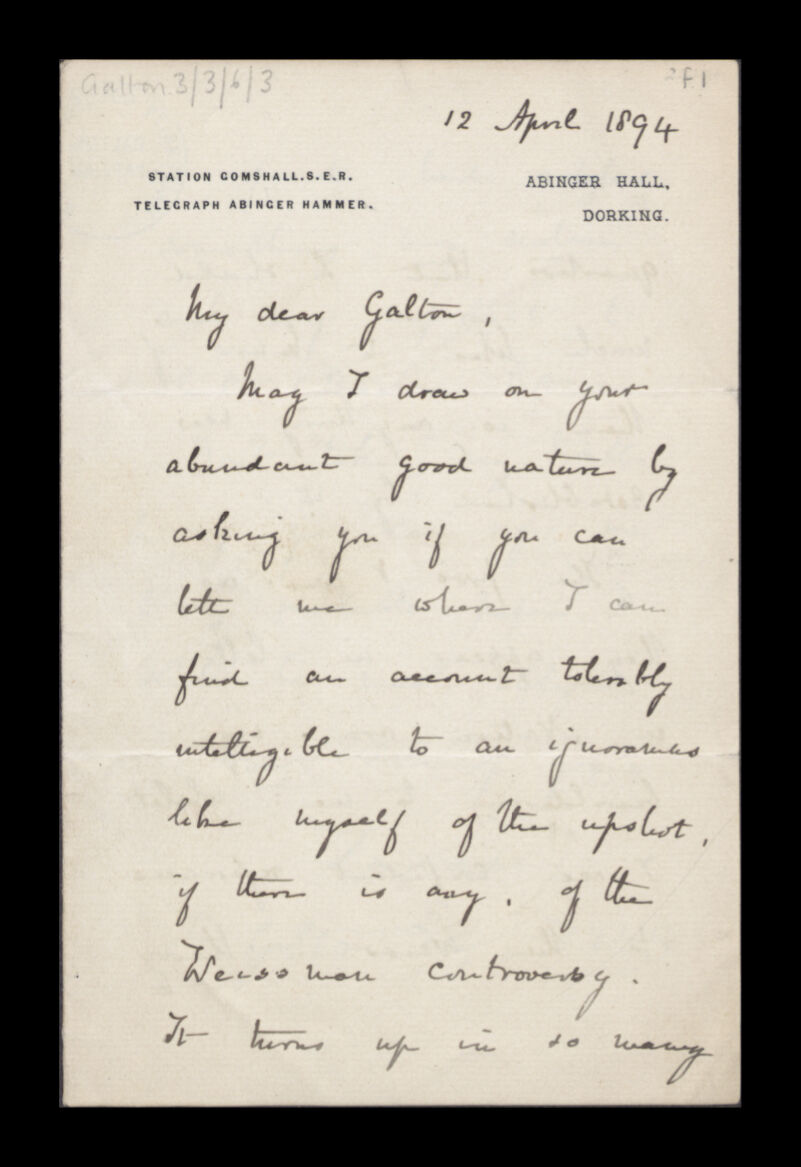 Galton 3/3/6/3
f1
12 April 1894
STATION GOMSHALL.S.E.R.
TELEGRAPH ABINGER HAMMER.
ABINGER HALL,
DORKING.
My dear Galton,
May I draw on your
abundant good nature by
asking you if you can
lett me where I can
find an account tolerably
intelligible to an ignoramus
like myself of the upshot,
if there is any, of the
Weissman controversy.
It turns up in so many